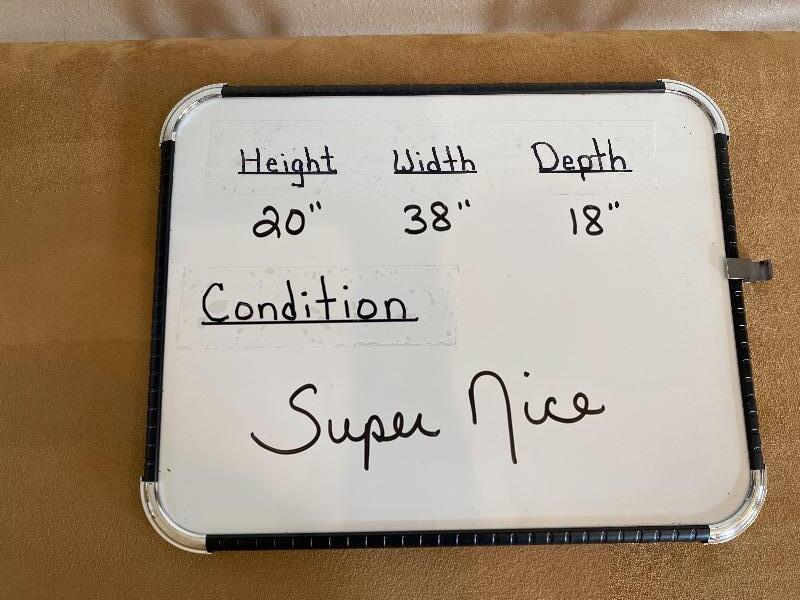 Height Width Depth
20" 38" 18"
Condition
Super Nice